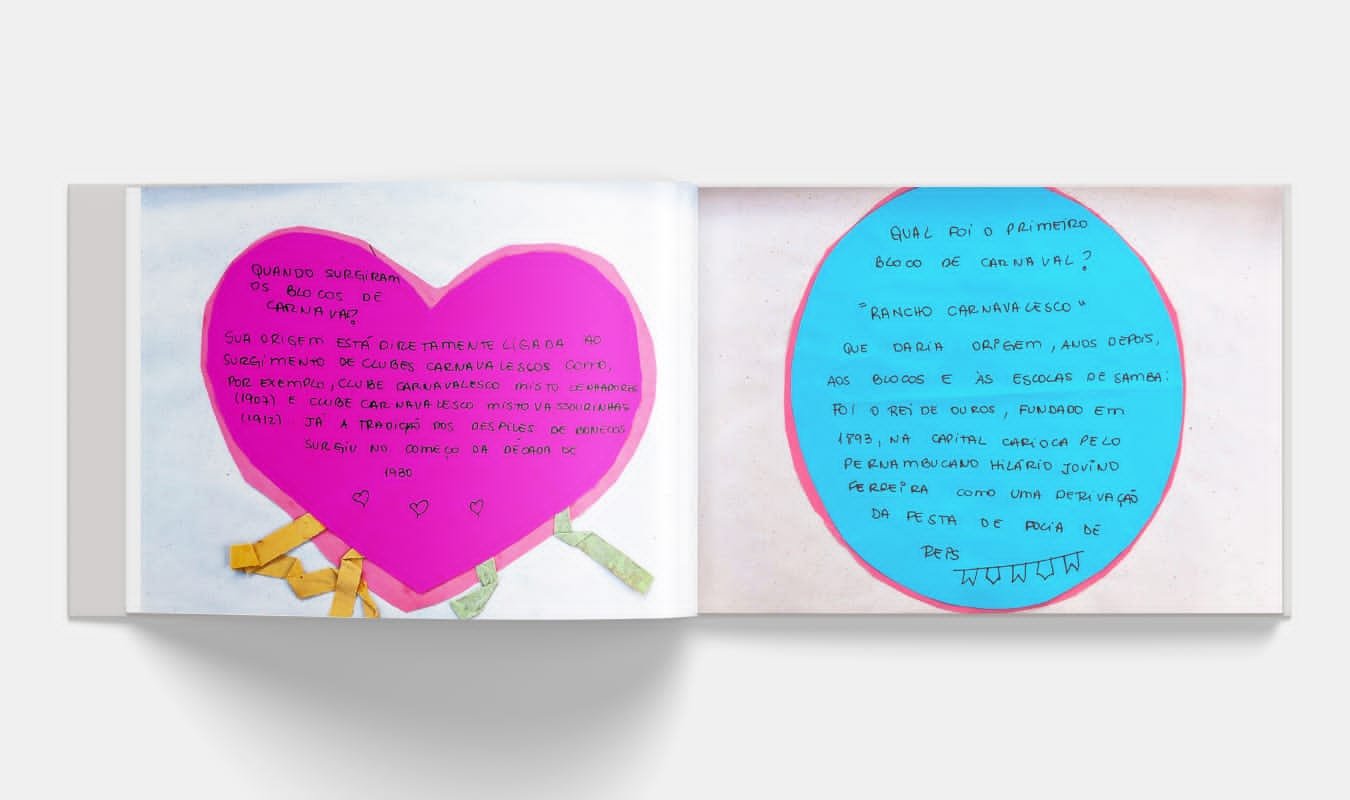 QUANDO SURGIRAM
OS BLOCOS DE
CARNAVAL?
SUA ORIGEM ESTÁ DIRETAMENTE LIGADA AO
SURGIMENTO DE CLUBES CARNAVALESCOS COMO,
POR EXEMPLO, CLUBE CARNAVALESCO MISTO LENHADORES
(1907) E CLUBE CARNAVALESCO MISTO VASSOURINHAS
(1912). JÁ A TRADIÇÃO DOS DESFILES DE BONECOS
SURGIU NO COMEÇO DA DÉCADA DE
1930
QUAL FOI O PRIMEIRO
BLOCO DE CARNAVAL?
"RANCHO CARNAVALESCO"
QUE DARIA ORIGEM, ANOS DEPOIS,
AOS BLOCOS E ÀS ESCOLAS DE SAMBA:
FOI O REI DE OUROS, FUNDADO EM
1893, NA CAPITAL CARIOCA PELO
PERNAMBUCANO HILÁRIO JOVINO
FERREIRA COMO UMA DERIVAÇÃO
DA FESTA DE FOLIA DE
REIS